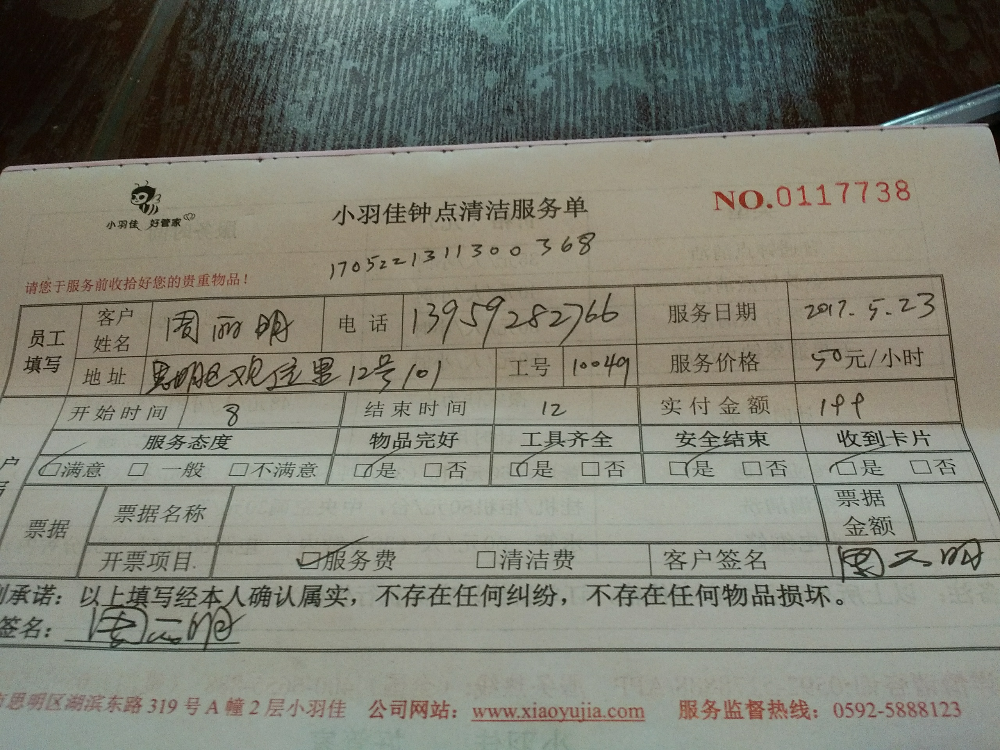 小羽佳 好管家
小羽佳钟点清洁服务单
NO.0117738
1705221311300368
请您于服务前收拾好您的贵重物品！
员工填写 客户姓名 周丽明 电话 13959282766 服务日期 2017.5.23
地址 思明区观音里12号101 工号 10049 服务价格 50元/小时
开始时间 8 结束时间 12 实付金额 199
服务态度 物品完好 工具齐全 安全结束 收到卡片
☑满意 □一般 □不满意 ☑是 □否 ☑是 □否 ☑是 □否 ☑是 □否
票据 票据名称 票据金额
开票项目 ☑服务费 □清洁费 客户签名
承诺：以上填写经本人确认属实，不存在任何纠纷，不存在任何物品损坏。
签名：
思明区湖滨东路 319 号 A 幢 2 层小羽佳 公司网站：www.xiaoyujia.com 服务监督热线：0592-5888123